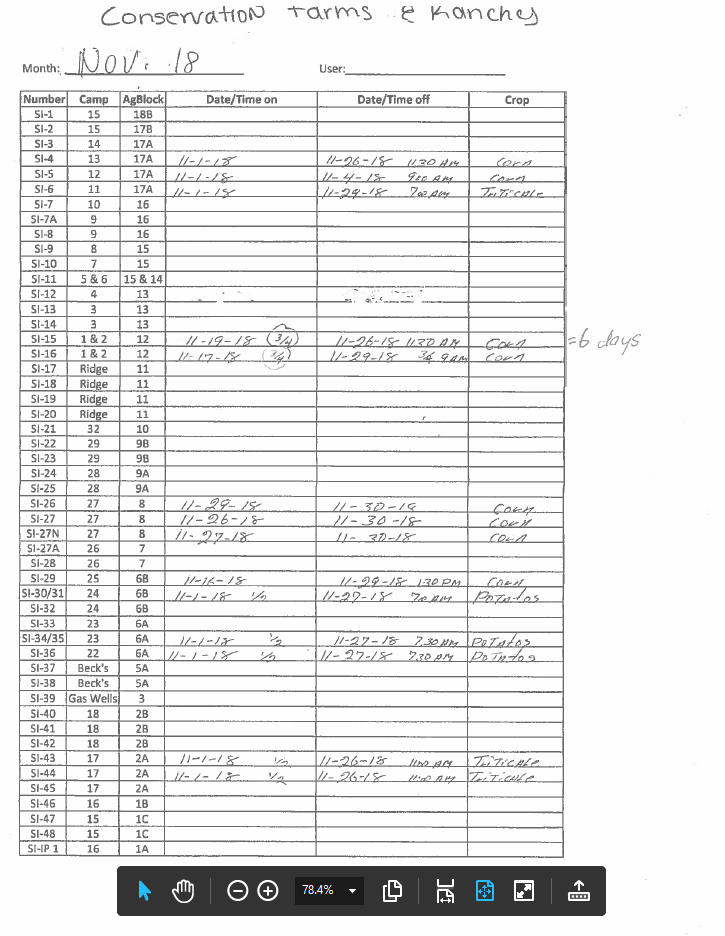 Conservation Farms & Ranches
Month: Nov. 18 User:
Number Camp AgBlock Date/Time on Date/Time off Crop
SI-1 15 18B
SI-2 15 17B
SI-3 14 17A
SI-4 13 17A 11-1-18 11-26-18 11:30 AM Corn
SI-5 12 17A 11-1-18 11-4-18 9:00 AM Corn
SI-6 11 17A 11-1-18 11-29-18 7:00 AM Triticale
SI-7 10 16
SI-7A 9 16
SI-8 9 16
SI-9 8 15
SI-10 7 15
SI-11 5 & 6 15 & 14
SI-12 4 13
SI-13 3 13
SI-14 3 13
SI-15 1 & 2 12 11-19-18 (3/4) 11-26-18 11:30 AM Corn =6 days
SI-16 1 & 2 12 11-17-18 (3/4) 11-29-18 3/4 9AM Corn
SI-17 Ridge 11
SI-18 Ridge 11
SI-19 Ridge 11
SI-20 Ridge 11
SI-21 32 10
SI-22 29 9B
SI-23 29 9B
SI-24 28 9A
SI-25 28 9A
SI-26 27 8 11-29-18 11-30-18 Corn
SI-27 27 8 11-26-18 11-30-18 Corn
SI-27N 27 8 11-27-18 11-30-18 Corn
SI-27A 26 7
SI-28 26 7
SI-29 25 6B 11-16-18 11-29-18 1:30 PM Corn
SI-30/31 24 6B 11-1-18 1/2 11-27-18 7:00 AM Potatos
SI-32 24 6B
SI-33 23 6A
SI-34/35 23 6A 11-1-18 1/2 11-27-18 7:30 AM Potatos
SI-36 22 6A 11-1-18 1/2 11-27-18 7:30 AM Potatos
SI-37 Beck's 5A
SI-38 Beck's 5A
SI-39 Gas Wells 3
SI-40 18 2B
SI-41 18 2B
SI-42 18 2B
SI-43 17 2A 11-1-18 1/2 11-26-18 11:00 AM Triticale
SI-44 17 2A 11-1-18 1/2 11-26-18 11:00 AM Triticale
SI-45 17 2A
SI-46 16 1B
SI-47 15 1C
SI-48 15 1C
SI-IP 1 16 1A
78.4%